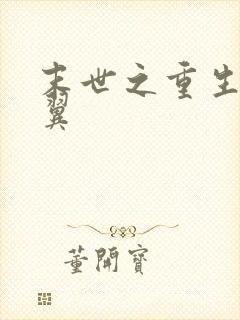 末世之重生
翼
董開寶